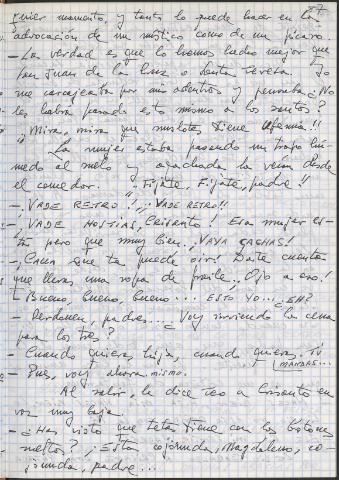 27
quier momento, y tanto lo puede hacer en la
advocación de un místico como de un pícaro.
– La verdad es que lo hemos hecho mejor que
San Juan de la Cruz o Santa Teresa. Yo
me carcajeaba por mis adentros y pensaba ¿No
les habrá pasado esto mismo a los santos?
¡¡Mira, mira que muslotes tiene Ufemia!!
La mujer estaba pasando un trapo hú-
medo al suelo y agachada la veían desde
el comedor. ¡¡Fíjate, Fíjate, padre!!
– ¡VADE RETRO! ¡¡VADE RETRO!!
– ¡VADE HOSTIAS, Crisanto! Esa mujer es-
tá pero que muy bien. ¡VAYA CACHAS!
– ¡Calla que te puede oir! Date cuenta
que llevas una ropa de fraile... Ojo a eso!
– Bueno, bueno, bueno... ESTO YO... ¿EH?
– Perdonen, padres... ¿Voy sirviendo la cena
para los tres?
– Cuando quieras, hija, cuando quieras. Tú
MANDAS...
– Pues, voy ahora mismo.
Al salir, le dice Teo a Crisanto en
voz muy baja.
– ¿Has visto que tetas tiene con los botones
sueltos? ¡Está cojonuda, Magdaleno, co-
jonuda, padre...